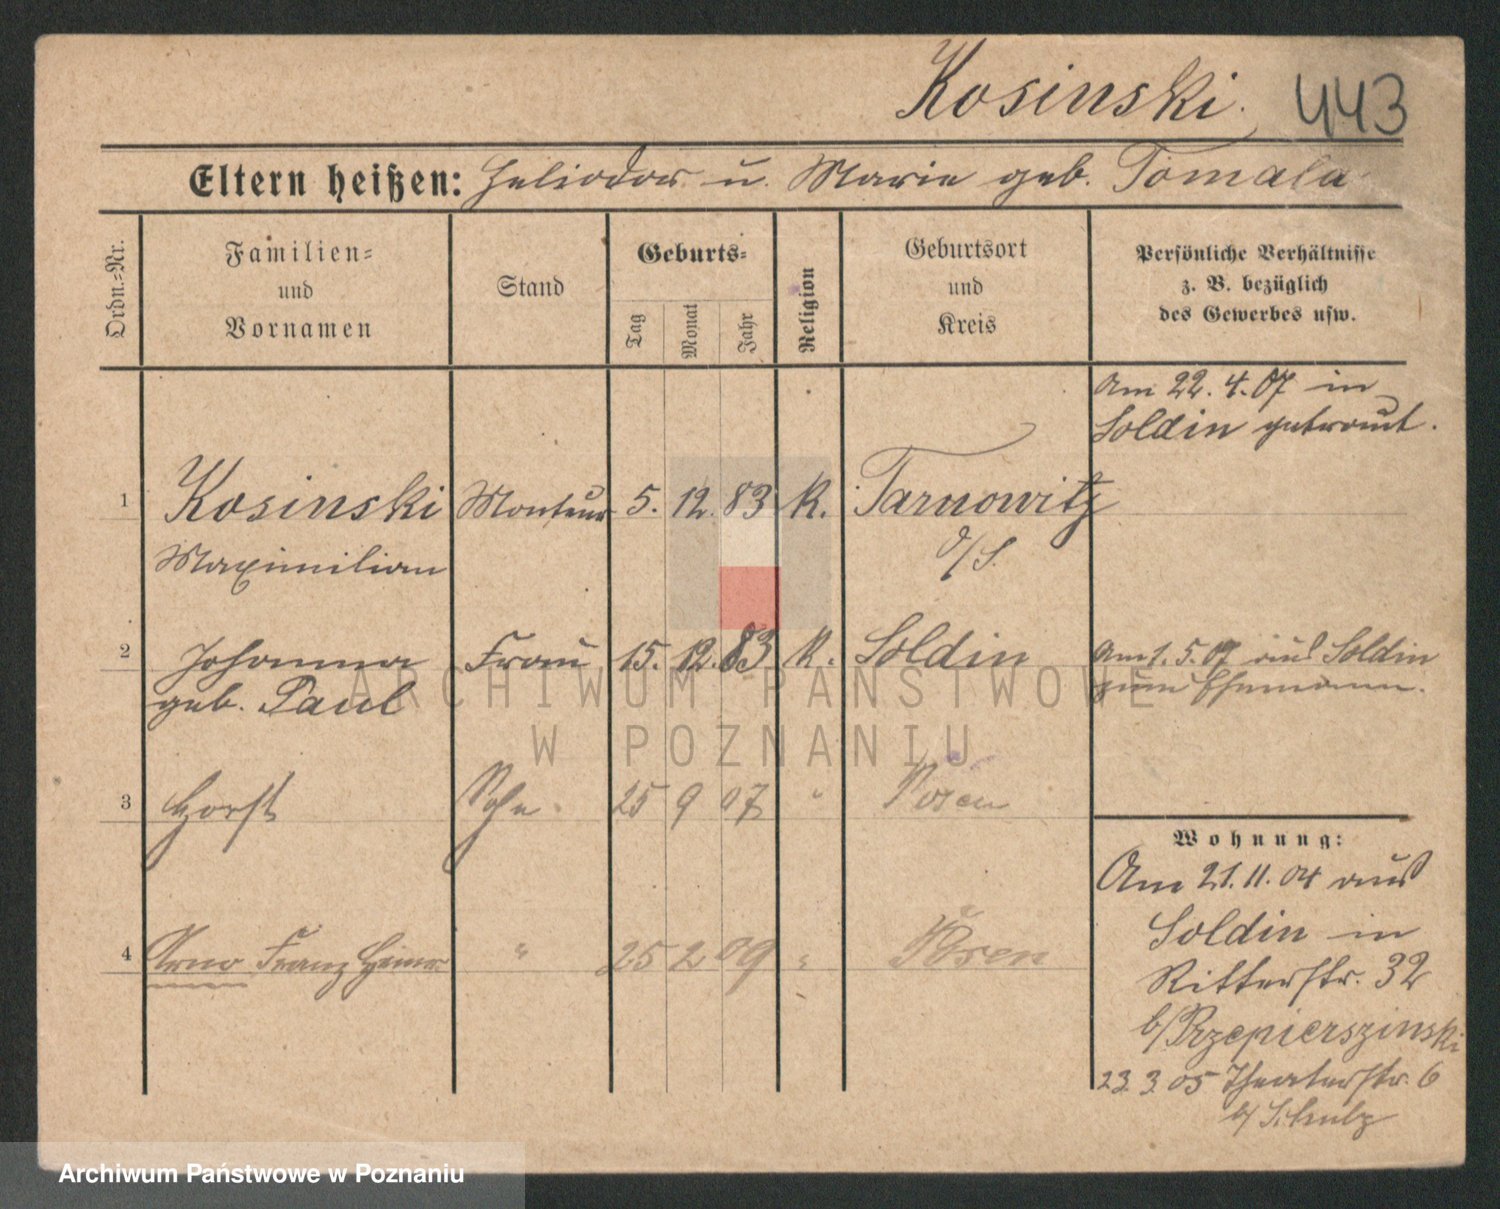 Kosinski. 443
Eltern heißen: Heliodor u. Marie geb. Tomala
Ordn.-Nr.
Familien- und Vornamen
Stand
Geburts-
Tag
Monat
Jahr
Religion
Geburtsort und Kreis
Persönliche Verhältnisse
z. B. bezüglich
des Gewerbes usw.
Am 22.4.07 in
Soldin getraut.
1 Kosinski Monteur 5. 12. 83 K. Tarnowitz
Maximilian O/S.
2 Johanna Frau 15. 12. 83 K. Soldin
geb. Paul
Am 1.5.07 aus Soldin
zum Ehemann.
3 Horst Sohn 25 9 07 " Posen
4 Arno Franz " 25 2 09 " Posen
Wohnung:
Am 21.11.04 aus
Soldin in
Ritterstr. 32
b/Przepierszinski
23.3.05 Theaterstr. 6
b/ Schulz
ARCHIWUM PAŃSTWOWE
W POZNANIU
Archiwum Państwowe w Poznaniu